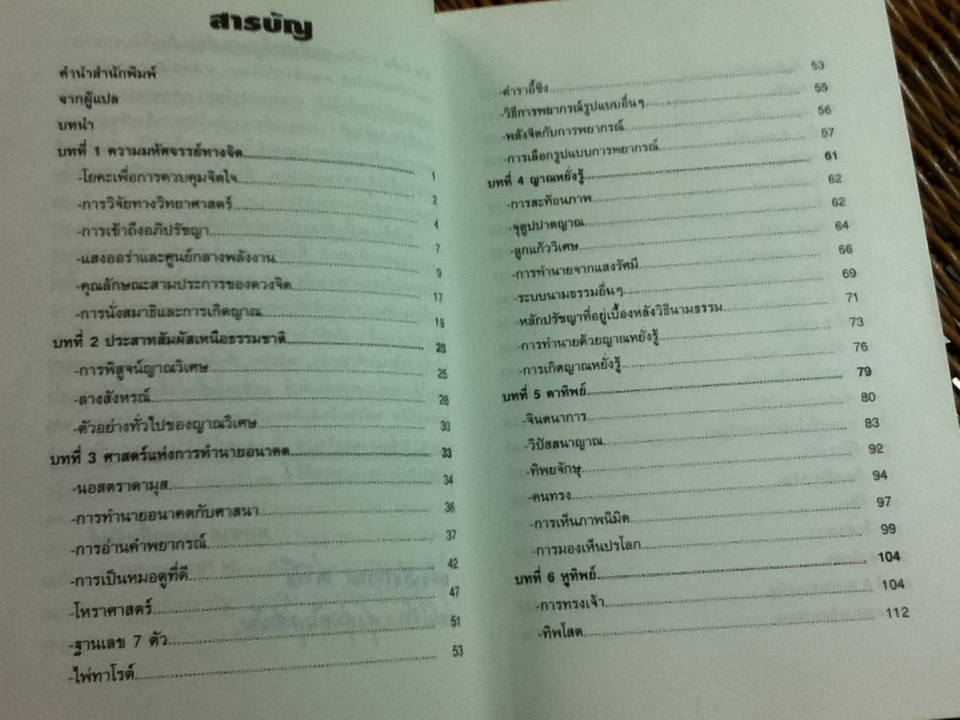 สารบัญ
คำนำสำนักพิมพ์
จากผู้แปล
บทนำ
บทที่ 1 ความมหัศจรรย์ทางจิต 1
-โยคะเพื่อการควบคุมจิตใจ 2
-การวิจัยทางวิทยาศาสตร์ 4
-การเข้าถึงอภิปรัชญา 7
-แสงออร่าและศูนย์กลางพลังงาน 9
-คุณลักษณะสามประการของดวงจิต 17
-การนั่งสมาธิและการเกิดญาณ 19
บทที่ 2 ประสาทสัมผัสเหนือธรรมชาติ
-การพิสูจน์ญาณวิเศษ 25
-ลางสังหรณ์ 28
-ตัวอย่างทั่วไปของญาณวิเศษ 30
บทที่ 3 ศาสตร์แห่งการทำนายอนาคต 33
-นอสตราดามุส 34
-การทำนายอนาคตกับศาสนา 36
-การอ่านคำพยากรณ์ 37
-การเป็นหมอดูที่ดี 42
-โหราศาสตร์ 47
-ฐานเลข 7 ตัว 51
-ไพ่ทาโรต์ 53
-ตำราอี้ชิง 53
-วิธีการพยากรณ์รูปแบบอื่นๆ 55
-พลังจิตกับการพยากรณ์ 56
-การเลือกรูปแบบการพยากรณ์ 57
บทที่ 4 ญาณหยั่งรู้ 61
-การสะท้อนภาพ 62
-จุตูปปาตญาณ 62
-ลูกแก้ววิเศษ 64
-การทำนายจากแสงรัศมี 66
-ระบบนามธรรมอื่นๆ 69
-หลักปรัชญาที่อยู่เบื้องหลังวิธีนามธรรม 71
-การทำนายด้วยญาณหยั่งรู้ 73
-การเกิดญาณหยั่งรู้ 76
บทที่ 5 ตาทิพย์ 79
-จินตนาการ 80
-วิปัสสนาญาณ 83
-ทิพยจักษุ 92
-คนทรง 94
-การเห็นภาพนิมิต 97
-การมองเห็นปรโลก 99
บทที่ 6 หูทิพย์ 104
-การทรงเจ้า 104
-ทิพโสต 112